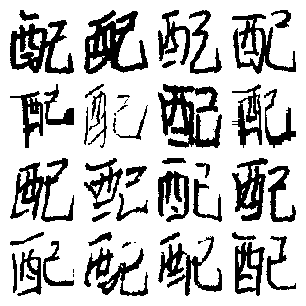 配配配配
配配配配
配配配配
配配配配